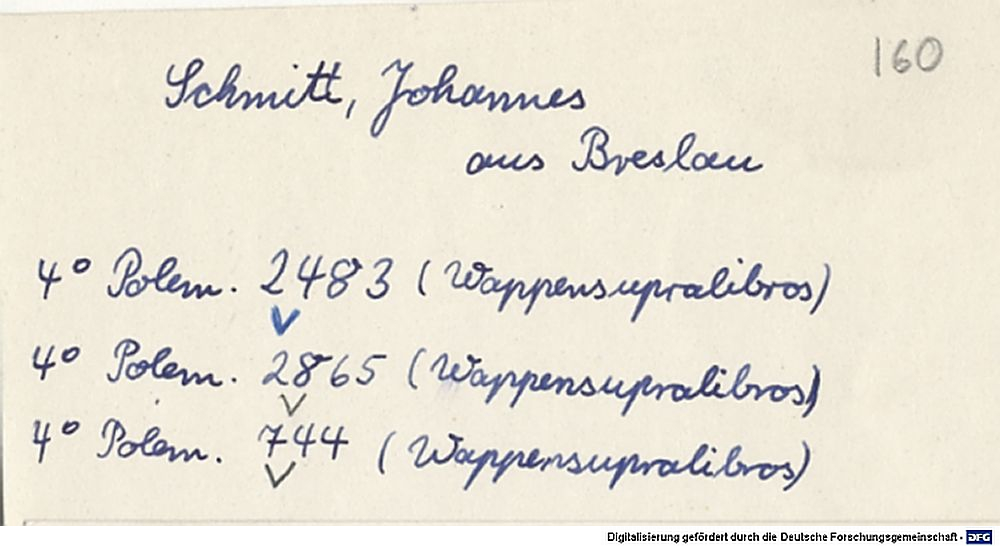 160
Schmitt, Johannes
aus Breslau
4° Polem. 2483 (Wappensupralibros)
4° Polem. 2865 (Wappensupralibros)
4° Polem. 744 (Wappensupralibros)
Digitalisierung gefördert durch die Deutsche Forschungsgemeinschaft - DFG